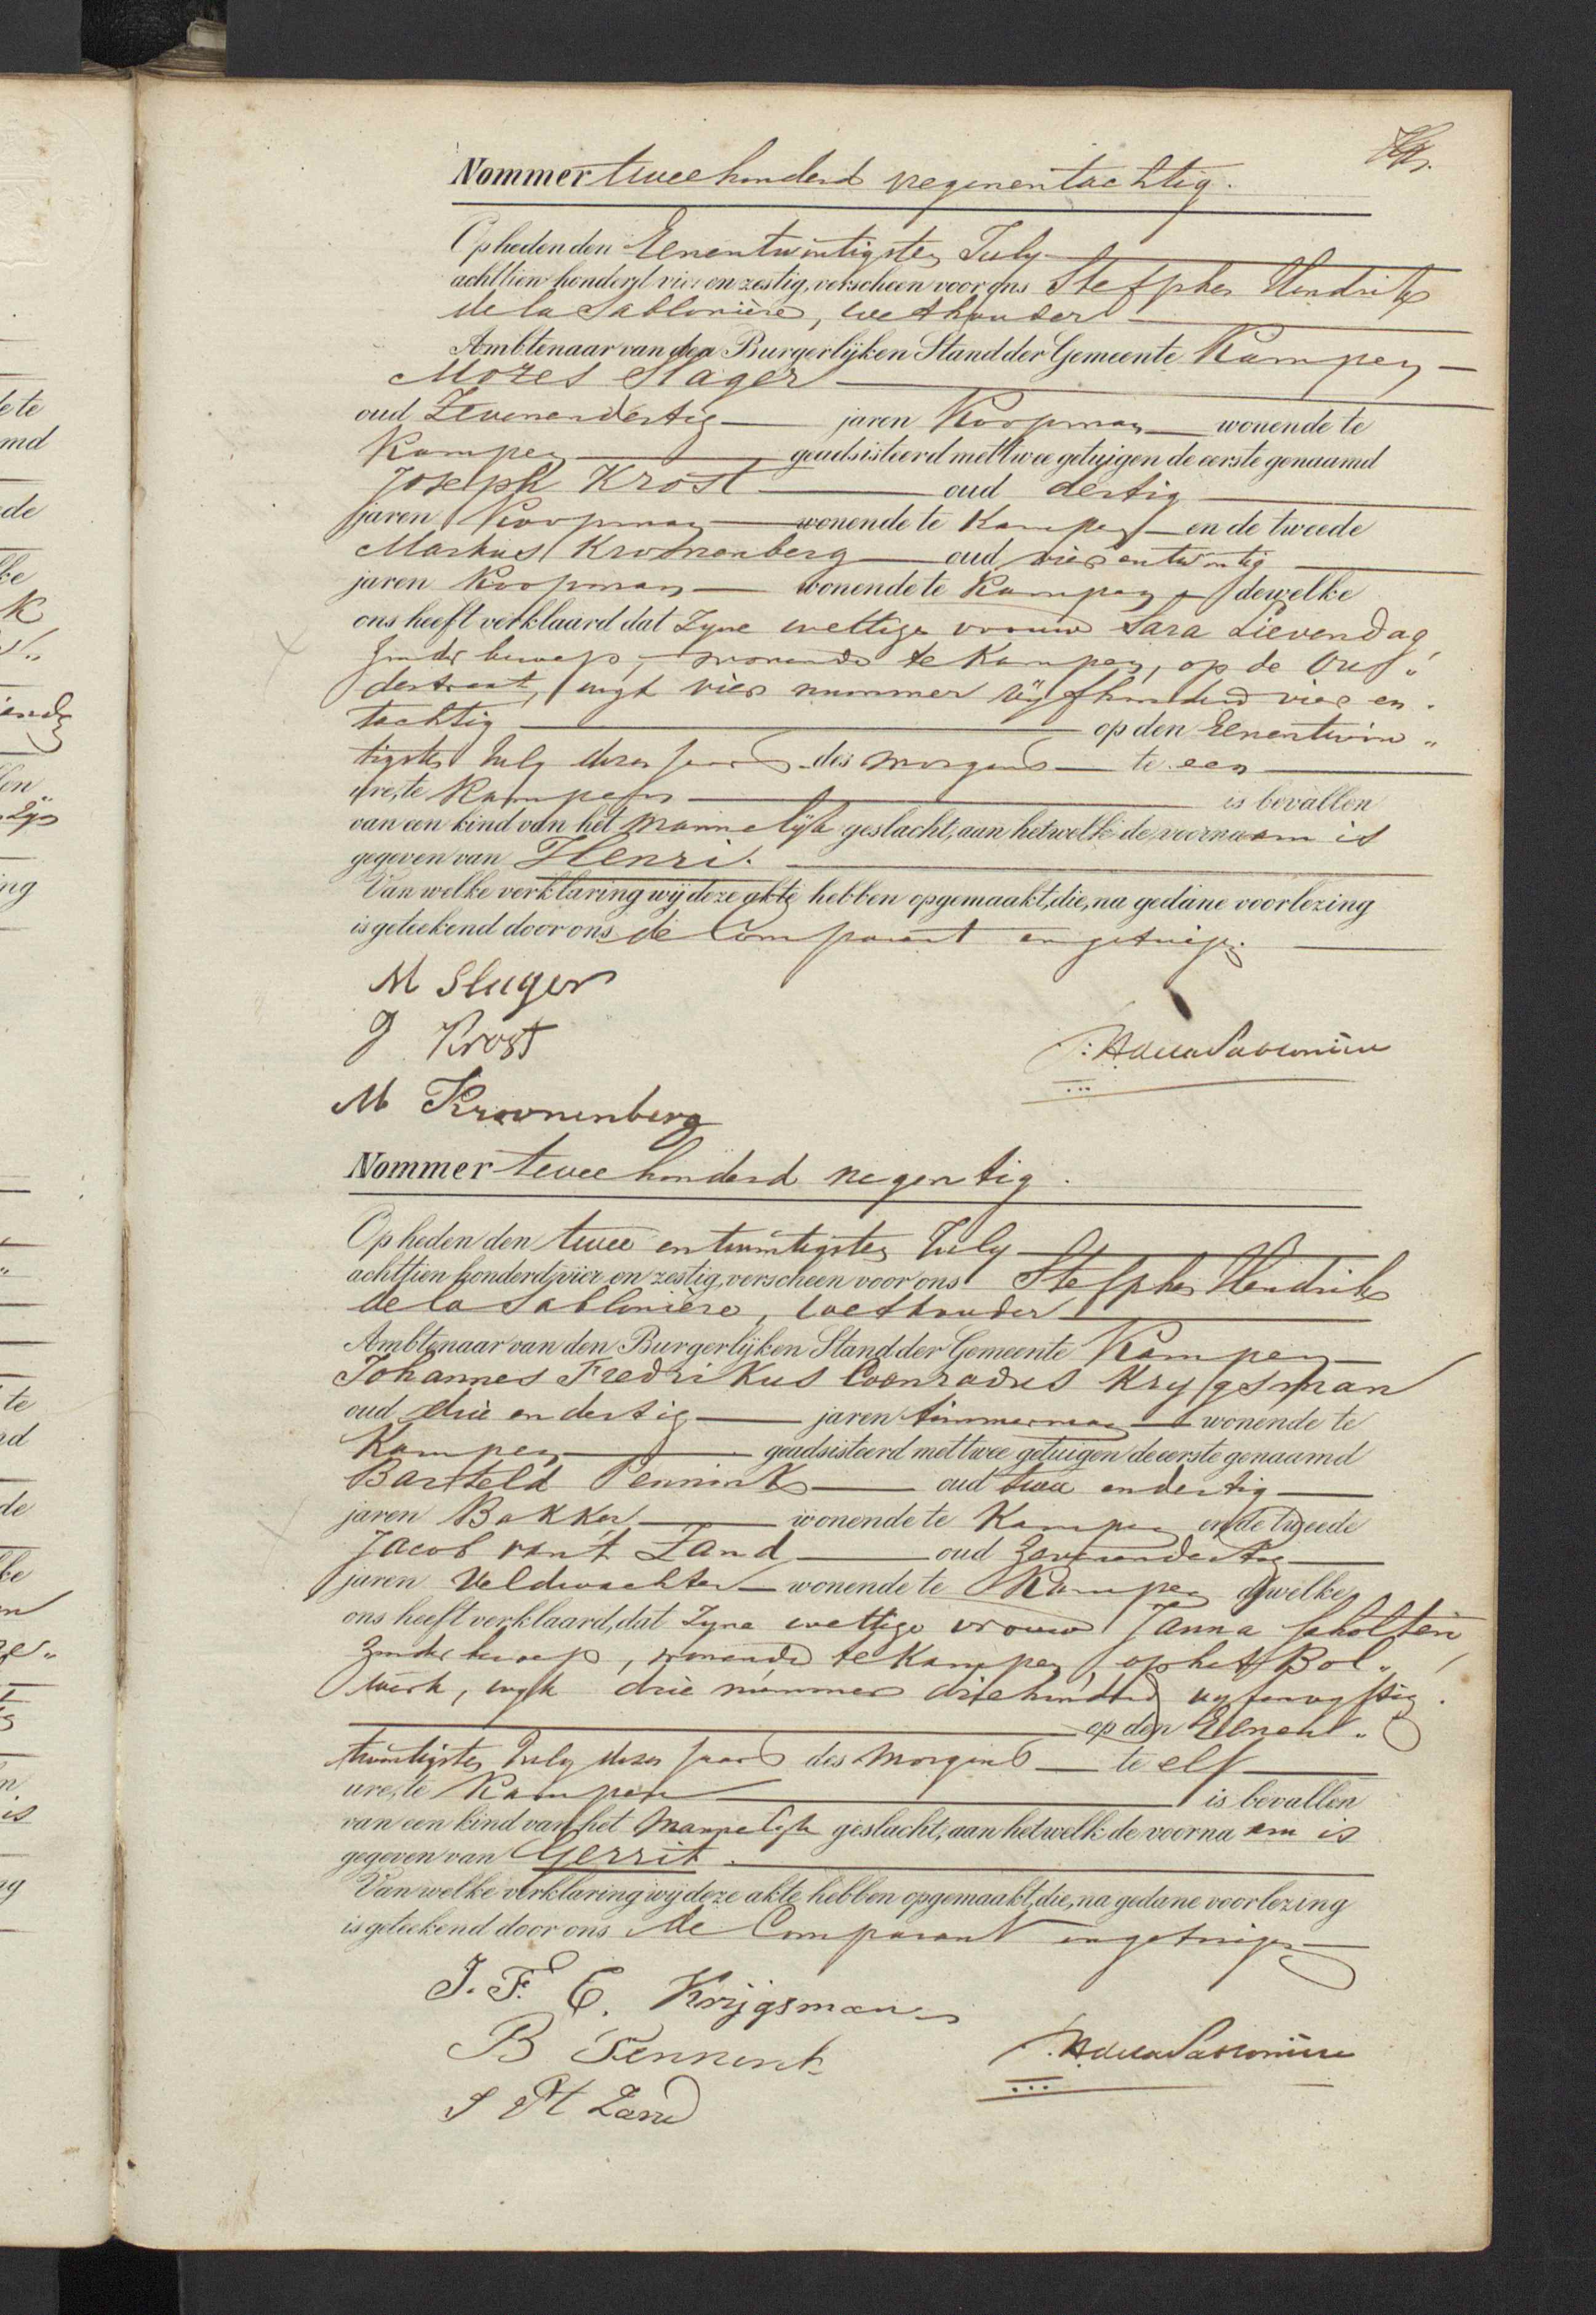 Nommer tweehonderd negenentachtig.
Op heden den Eenentwintigsten July
achttien honderd vier en zestig, verscheen voor ons Stefphen Hendrik
de la Sablonière, wethouder
Ambtenaar van den Burgerlijken Stand der Gemeente Kampen
Mozes Slager
oud Zevenendertig jaren Koopman wonende te
Kampen geadsisteerd met twee getuigen de eerste genaamd
Joseph Krost oud dertig
jaren Koopman wonende te Kampen en de tweede
Markus Kroonenberg oud vierentwintig
jaren Koopman wonende te Kampen dewelke
ons heeft verklaard dat Zyne wettige vrouw Sara Lievendag
Zonder beroep, wonende te Kampen, op de Ou
destraat, wyk vier nummer vyfhonderd vier en
tachtig op den Eenentwin„
tigsten July dezes jaars des morgens te een
ure, te Kampen is bevallen
van een kind van het mannelyk geslacht, aan hetwelk de voornaam is
gegeven van Henri.
Van welke verklaring wij deze akte hebben opgemaakt, die, na gedane voorlezing
is geteekend door ons de Comparant en getuigen
M Slager
J Krost
M Kroonenberg
Nommer tweehonderd negentig.
Op heden den twee entwintigsten July
achttien honderd vier en zestig, verscheen voor ons Stefphen Hendrik
de la Sablonière, wethouder
Ambtenaar van den Burgerlijken Stand der Gemeente Kampen
Johannes Fredrikus Coenradus Krygsman
oud drie en dertig jaren timmerman wonende te
Kampen geadsisteerd met twee getuigen de eerste genaamd
Barteld Pennink oud twee endertig
jaren Bakker wonende te Kampen en de tweede
Jacob van 't Zand oud Zevenendertig
jaren Veldwachter wonende te Kampen dewelke
ons heeft verklaard, dat Zyne wettige vrouw Janna Scholten
Zonder beroep, wonende te Kampen, op het Bol„
werk, wyk drie nummer driehonderd vyfenvyftig
op den Eenen„
twintigsten July dezes jaars des morgens te elf
ure, te Kampen is bevallen
van een kind van het mannelyk geslacht, aan hetwelk de voornaam is
gegeven van Gerrit.
Van welke verklaring wij deze akte hebben opgemaakt, die, na gedane voorlezing
is geteekend door ons de Comparant en getuigen
J. F. C. Krijgsman
B Pennink
J Vt Zand